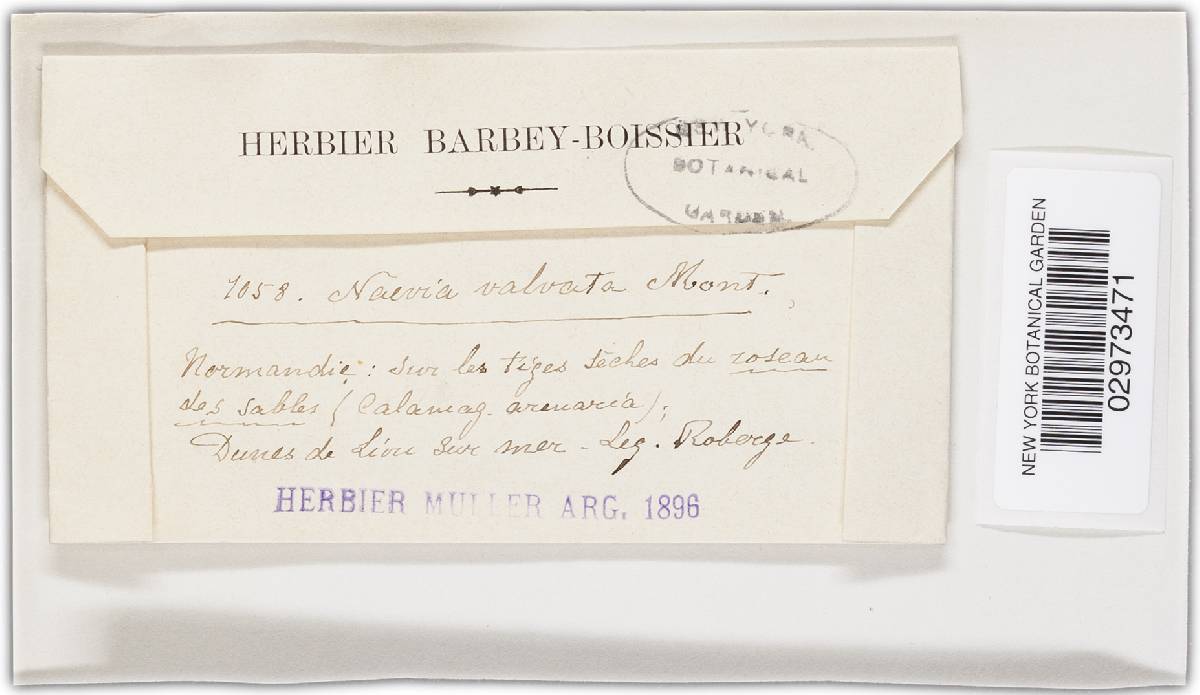 HERBIER BARBEY-BOISSIER
NEW YORK
BOTANICAL
GARDEN.
1058. Naevia valvata Mont.
Normandie : sur les tiges sèches du roseau
des sables (Calamag. arenaria);
Dunes de Lion sur mer - Leg. Roberge.
HERBIER MULLER ARG. 1896
NEW YORK BOTANICAL GARDEN
02973471